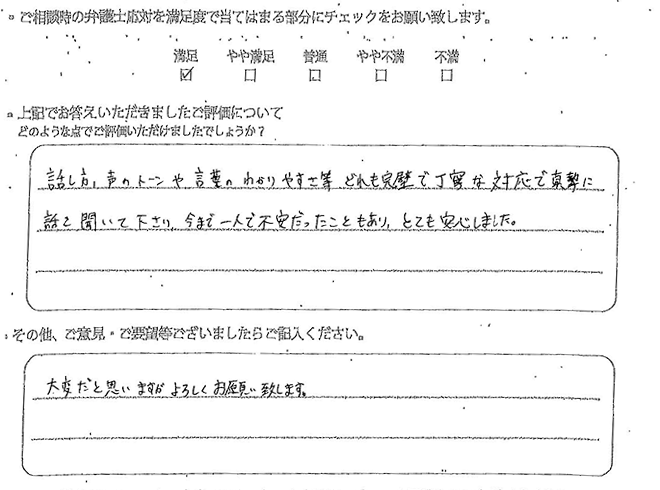 ご相談時の弁護士応対を満足度で当てはまる部分にチェックをお願い致します。
満足 やや満足 普通 やや不満 不満
☑ □ □ □ □
上記でお答えいただきましたご評価について
どのような点でご評価いただけましたでしょうか?
話し方、声のトーンや言葉のわかりやすさ等どれも完璧で丁寧な対応で真摯に
話を聞いて下さり、今まで一人で不安だったこともあり、とても安心しました。
その他、ご意見・ご要望等ございましたらご記入ください。
大変だと思いますがよろしくお願い致します。